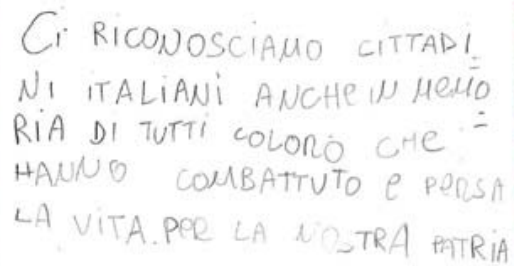 Ci RICONOSCIAMO CITTADI=
NI ITALIANI ANCHE IN MEMO=
RIA DI TUTTI COLORO CHE
HANNO COMBATTUTO e PERSA
LA VITA PER LA NOSTRA PATRIA